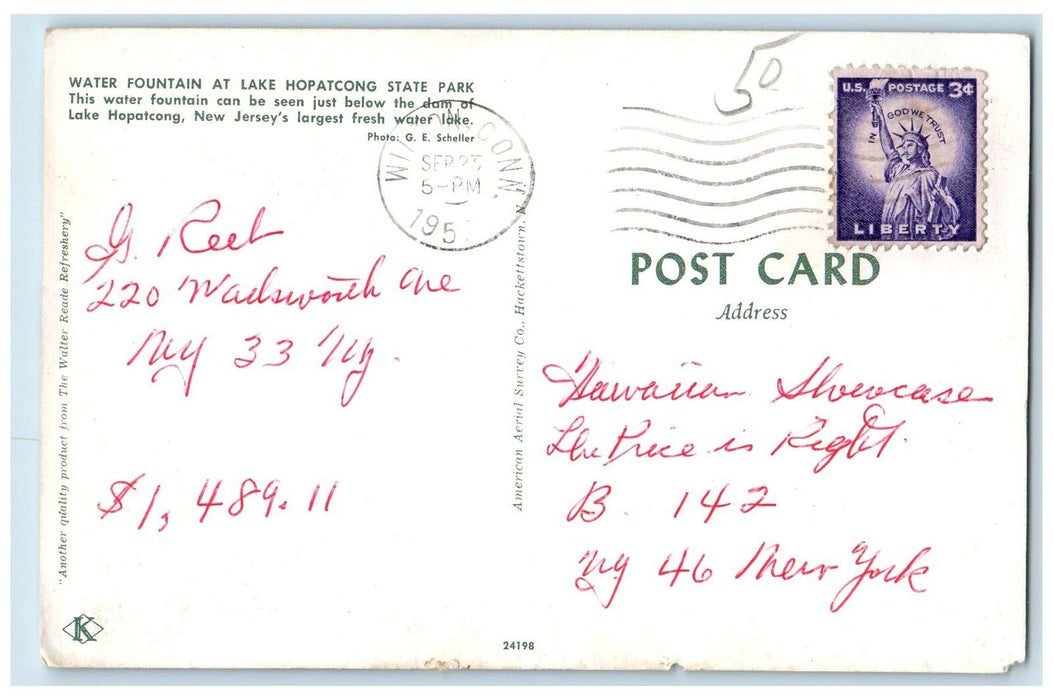 WATER FOUNTAIN AT LAKE HOPATCONG STATE PARK
This water fountain can be seen just below the dam of
Lake Hopatcong, New Jersey's largest fresh water lake.
Photo: G. E. Scheller
WILTON, CONN.
SEP 23
5-PM
195
50
U.S. POSTAGE 3¢
IN GOD WE TRUST
LIBERTY
G.
220 Wadsworth Ave
NY 33 NY.
$1,489.11
"Another quality product from The Walter Reade Refreshery"
American Aerial Survey Co., Hackettstown, N.J.
POST CARD
Address
Hawaiian Showcase
The Price is Right.
B. 142
NY 46 New York
K
24198